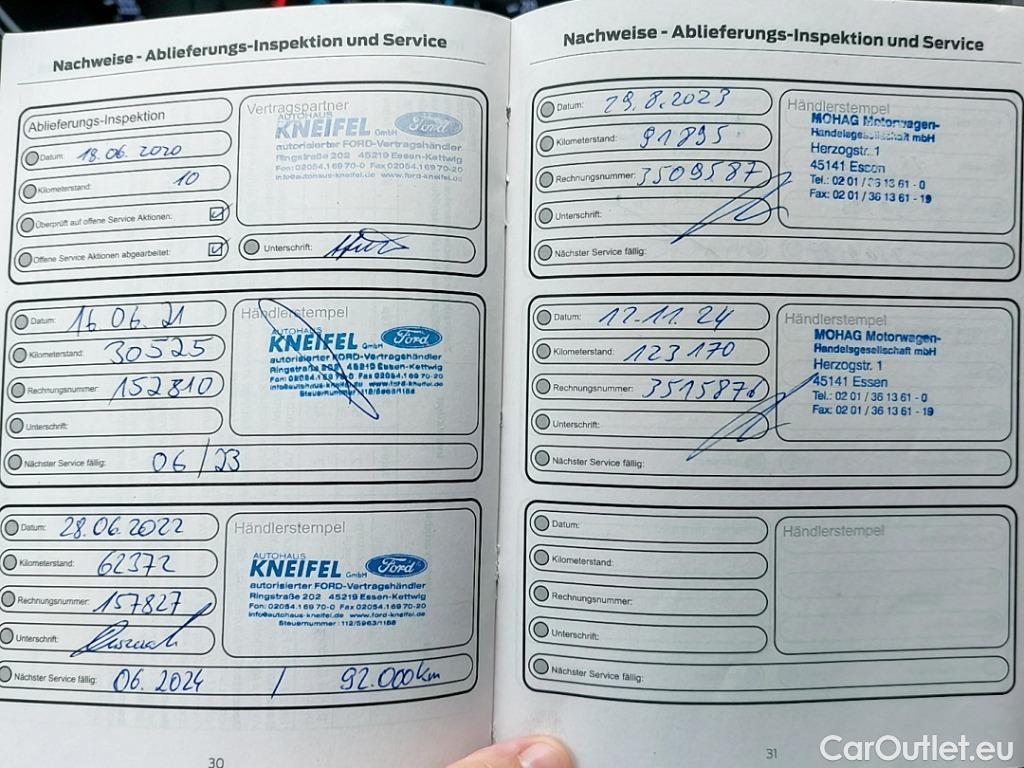 Nachweise - Ablieferungs-Inspektion und Service
Ablieferungs-Inspektion
Datum: 18.06.2020
Kilometerstand: 10
Überprüft auf offene Service Aktionen:
Offene Service Aktionen abgearbeitet:
Vertragspartner
AUTOHAUS
KNEIFEL GmbH Ford
autorisierter FORD-Vertragshändler
Ringstraße 202 45219 Essen-Kettwig
Fon: 02054.169 70-0 Fax 02054.169 70-20
info@autohaus-kneifel.de www.ford-kneifel.de
Unterschrift:
Datum: 16.06.21
Kilometerstand: 30525
Rechnungsnummer: 152810
Unterschrift:
Nächster Service fällig: 06/23
Händlerstempel
AUTOHAUS
KNEIFEL GmbH Ford
autorisierter FORD-Vertragshändler
Ringstraße 202 45219 Essen-Kettwig
Fon: 02054.169 70-0 Fax 02054.169 70-20
info@autohaus-kneifel.de www.ford-kneifel.de
Steuernummer: 112/5963/1188
Datum: 28.06.2022
Kilometerstand: 62372
Rechnungsnummer: 157827
Unterschrift:
Nächster Service fällig: 06.2024 / 92.000km
Händlerstempel
AUTOHAUS
KNEIFEL GmbH Ford
autorisierter FORD-Vertragshändler
Ringstraße 202 45219 Essen-Kettwig
Fon: 02054.169 70-0 Fax 02054.169 70-20
info@autohaus-kneifel.de www.ford-kneifel.de
Steuernummer: 112/5963/1188
30
Nachweise - Ablieferungs-Inspektion und Service
Datum: 29.8.2023
Kilometerstand: 91895
Rechnungsnummer: 3509587
Unterschrift:
Nächster Service fällig:
Händlerstempel
MOHAG Motorwagen-
Handelsgesellschaft mbH
Herzogstr. 1
45141 Essen
Tel.: 02 01 / 36 13 61 - 0
Fax: 02 01 / 36 13 61 - 19
Datum: 12.11.24
Kilometerstand: 123170
Rechnungsnummer: 3515876
Unterschrift:
Nächster Service fällig:
Händlerstempel
MOHAG Motorwagen-
Handelsgesellschaft mbH
Herzogstr. 1
45141 Essen
Tel.: 02 01 / 36 13 61 - 0
Fax: 02 01 / 36 13 61 - 19
Datum:
Kilometerstand:
Rechnungsnummer:
Unterschrift:
Nächster Service fällig:
Händlerstempel
31
CarOutlet.eu